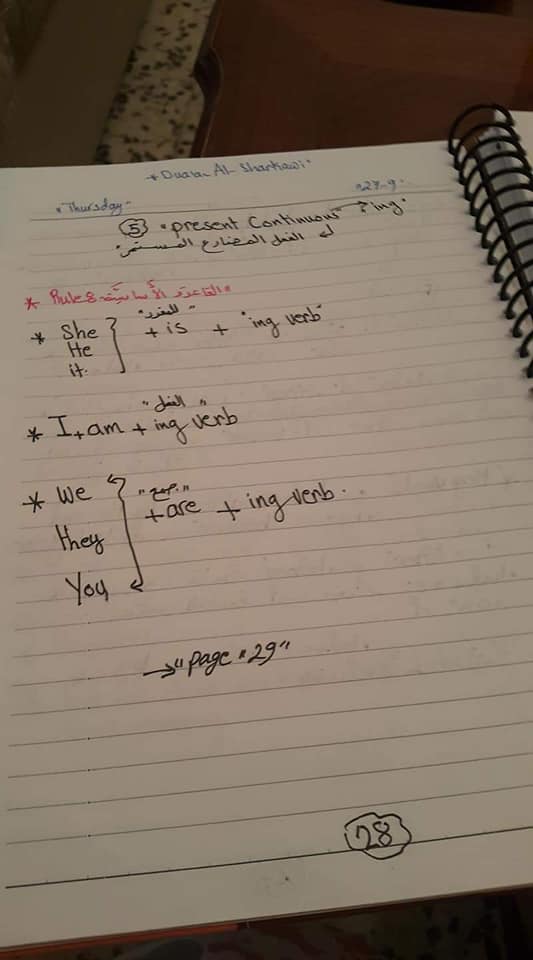 * Duaa Al-Sharkawi
"Thursday" "27-9"
(5) "present Continuous" → ing"
الفعل المضارع المستمر"
* Rule 8 القاعدة الأساسية"
"للمفرد"
* She + is + "ing verb"
He
it.
"الفعل"
* I + am + ing verb
* We "جمع" + are + ing verb.
they
You
→ "page "29"
28